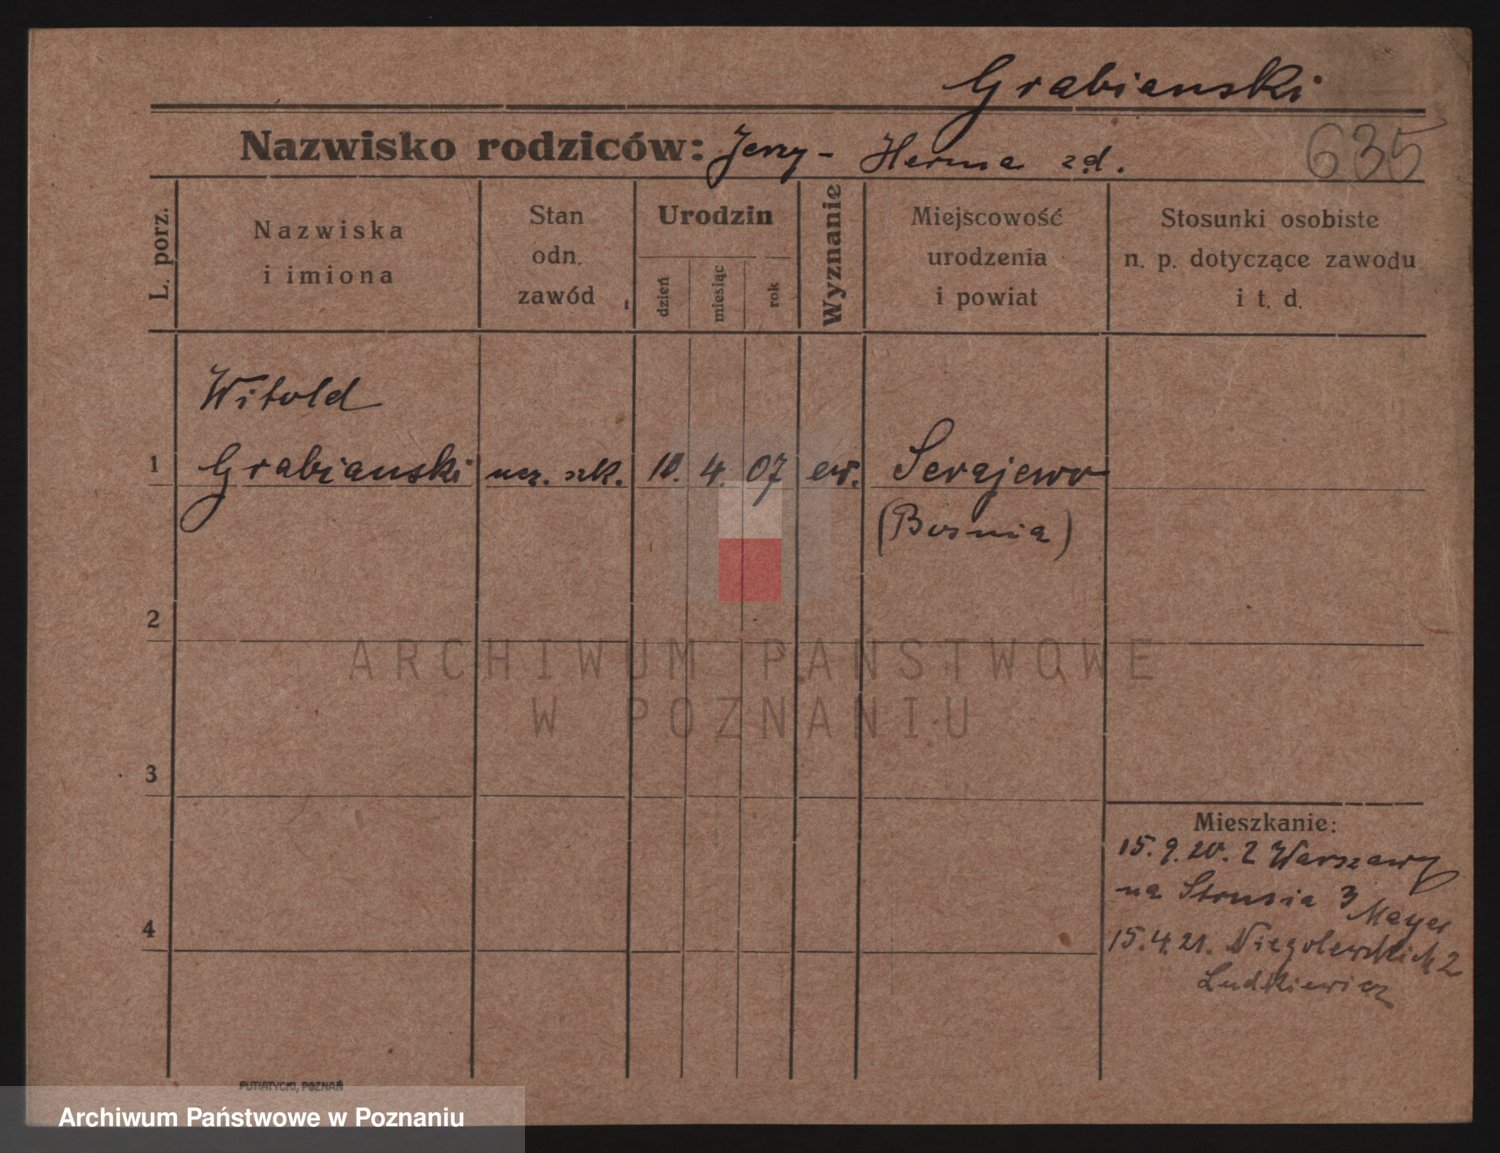 Grabianski
635
Nazwisko rodziców: Jerzy - Herma zd.
L. porz.
Nazwiska
i imiona
Stan
odn.
zawód
Urodzin
dzień
miesiąc
rok
Wyznanie
Miejscowość
urodzenia
i powiat
Stosunki osobiste
n. p. dotyczące zawodu
i t. d.
Witold
1 Grabianski ucz. szk. 10. 4. 07 ew. Serajewo
(Bosnia)
2
ARCHIWUM PAŃSTWOWE
W POZNANIU
3
Mieszkanie:
15.9.20. z Warszawy
na Strusia 3 Mayer
4
15.4.21. Niegolewskich 2
Ludkiewicz
PUTIATYCKI, POZNAŃ
Archiwum Państwowe w Poznaniu